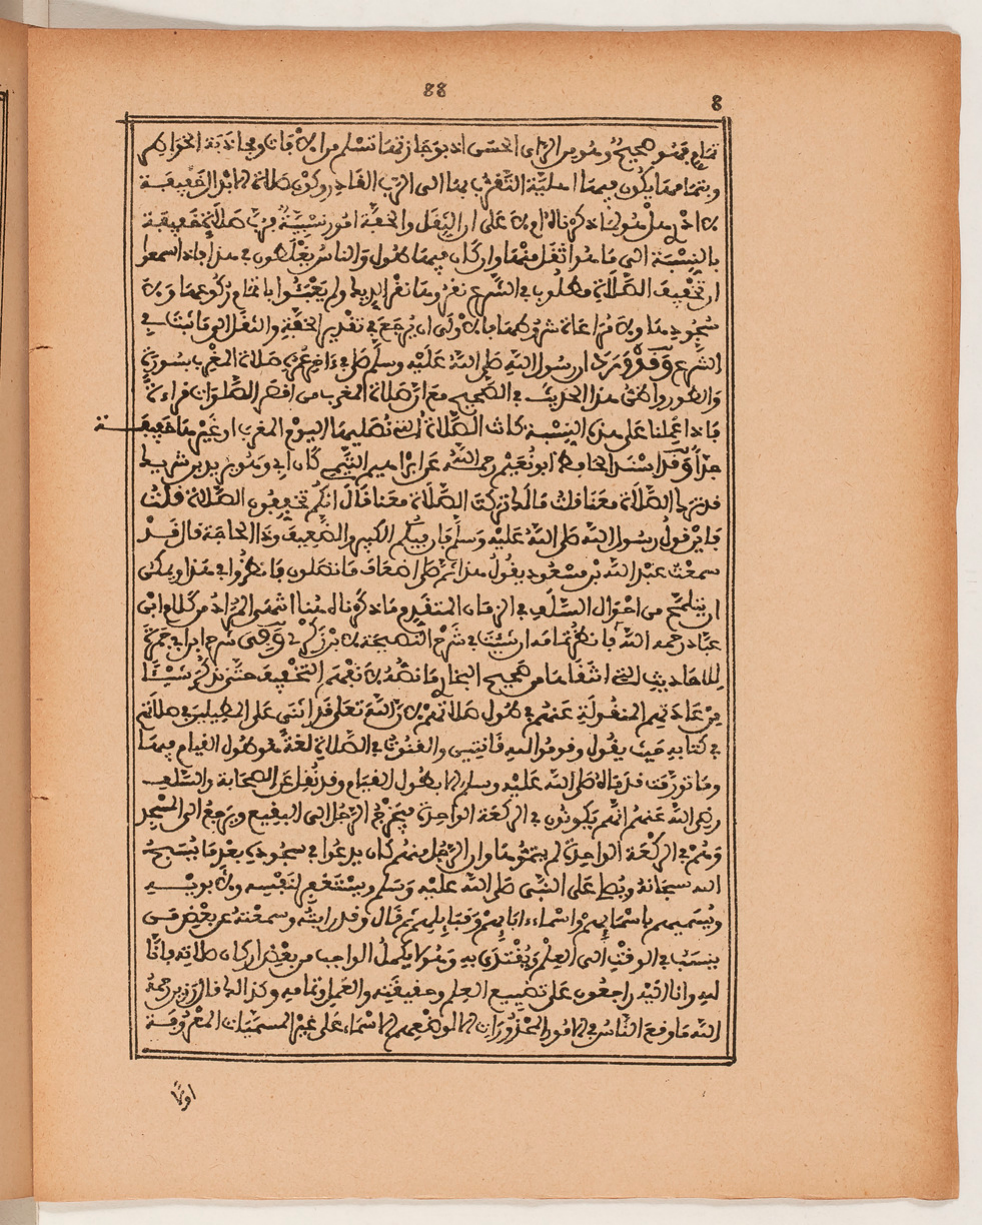 88
8
تمام فهو صحيح وهو من الرأي الحسن اذ بوجازتها تسلم من الافات ومجاذبة الخواطر
ويتمامها يكون فيها اهلية التقرب بها الى الرب القادر وكون صلاة الابدال خفيفة
لا اشكال هو لما ذكرناه اولا على ان الثقل والخفة امور نسبية فرب صلاة خفيفة
بالنسبة الى ما هو اثقل منها وان كان فيها طول والناس يغلطون في هذا فاذا سمعوا
ان تخفيف الصلاة مطلوب في الشرع نقروها نقر الديك ولم يعبئوا باتمام ركوعها ولا
سجودها ولا مراعاة شروطها بالاولى ان يرجع في تقدير الخفة والثقل الى ما ثبت في
الشرع وقد ورد ان رسول الله صلى الله عليه وسلم صلى في ءاخر عمره صلاة المغرب بسورة
والطور واظن هذا الحديث في الصحيح مع ان صلاة المغرب من اقصر الصلوات قراءة
فاذا عملنا على هذه النسبة كانت الصلاة التي نصليها اليوم المغرب او غيرها خفيفة
جدا وقد اسند الحافظ ابو نعيم رحمه الله عن ابراهيم التيمي كان ابي وهو يزيد بن شريك
قد ترك الصلاة معنا فقلت مالك تركت الصلاة معنا قال انكم تخففون الصلاة قلت
فاين قول رسول الله صلى الله عليه وسلم فان فيكم الكبير والضعيف وذا الحاجة قال قد
سمعت عبد الله بن مسعود يقول هذا ثم صلى اضعاف ما تصلون فانظروا في هذا ويمكن
ان يتلمح من احوال السلف في الزمان المتقدم ما ذكرناه هنا اشهر المراد من كلام ابن
عباد رحمه الله فانظر تمامه ان شئت في شرح النصيحة لابن زكري وفي شرح ابن ابي جمرة
للاحاديث التي انتقاها من صحيح البخاري ما نصه لا نفهم التخفيف حتى نذكر شيئا
من عادتهم المنقولة عنهم في طول صلاتهم لان الله تعلى قد اثنى على المطيلين في صلاتهم
في كتابه حيث يقول وقوموا لله قانتين والقنوت في الصلاة لغة هو طول القيام فيها
وما تورمت قدماه صلى الله عليه وسلم الا بطول القيام وقد نقل عن الصحابة والسلف
رضي الله عنهم انهم يكونون في الركعة الواحدة فيخرج الرجل الى البقيع ويرجع الى المسجد
وهم في الركعة الواحدة لم يتموها وان الرجل منهم كان يدعوا في سجوده بعد ما يسبح
الله سبحانه ويصلي على النبي صلى الله عليه وسلم ويستغفر لنفسه ولابويه
ويسميهم باسمائهم واسماء ابائهم وقبائلهم ثم قال وقد رايته وسمعته عن بعض من
ينسب في الوقت الى العلم ويقتدى به وهو لا يكمل الواجب من بعض اركان صلاته فانا
لله وانا اليه راجعون على تضييع العلم وحقيقته والعمل وتمامه وكذا الى قال زين رحمه
الله ما وقع الناس في الامور المحذورات الا لوضعهم الاسماء على غير المسميات المعروفة
اولا